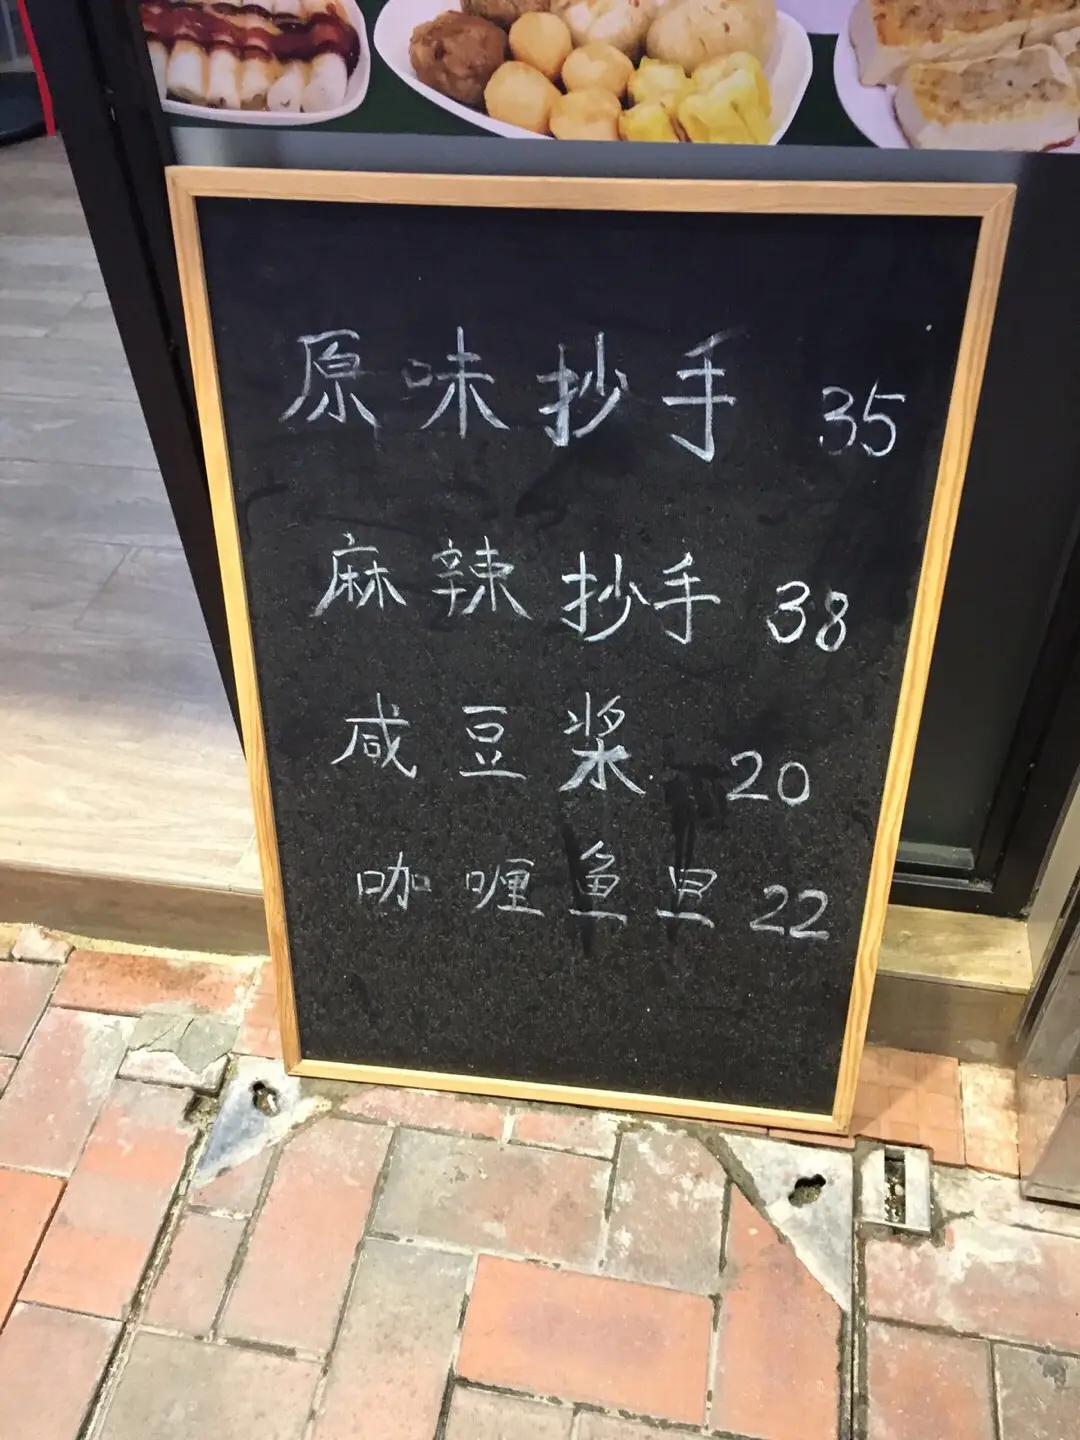 原味抄手 35
麻辣抄手 38
咸豆浆 20
咖喱鱼旦 22